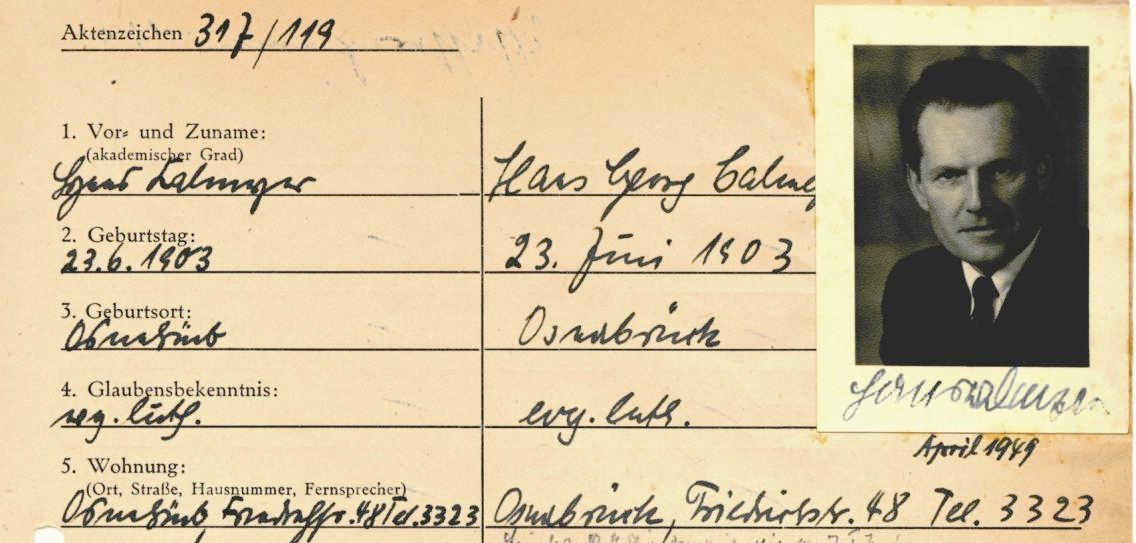 Aktenzeichen 317/119
1. Vor- und Zuname:
(akademischer Grad)
Hans Calmeyer
Hans Georg Calmey
2. Geburtstag:
23.6.1903
23. Juni 1903
3. Geburtsort:
Osnabrück
Osnabrück
4. Glaubensbekenntnis:
evg. luth.
evg. luth.
Hans Calmeyer
April 1949
5. Wohnung:
(Ort, Straße, Hausnummer, Fernsprecher)
Osnabrück Friedrichstr. 48 Tel. 3323
Osnabrück, Friedrichstr. 48 Tel. 3323